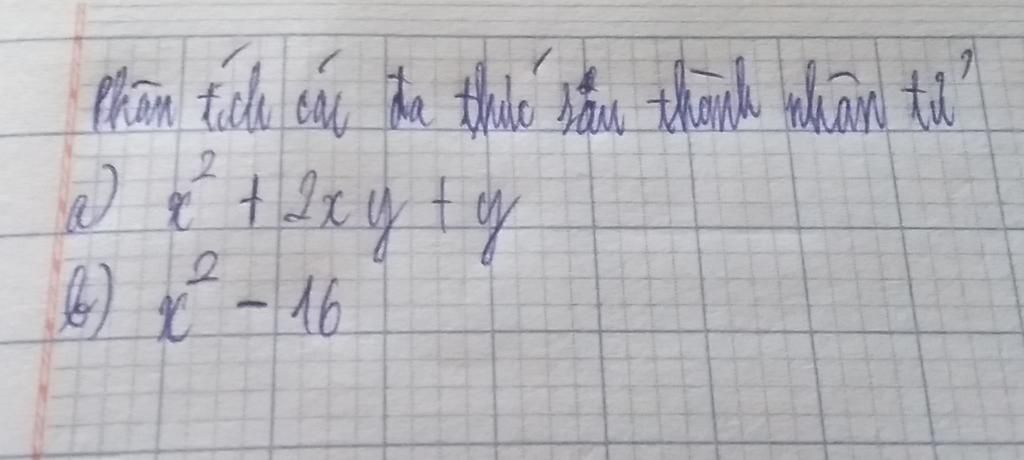 Phân tích các đa thức sau thành nhân tử
a) x² + 2xy + y
b) x² - 16